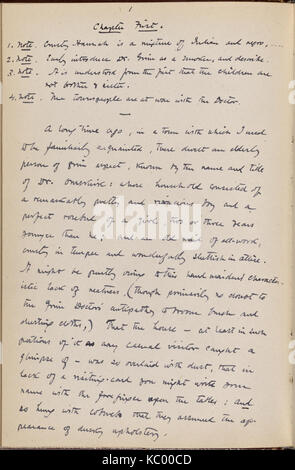 1
Chapter First.
1. Note. Crusty Hannah is a mixture of Indian and negro, ....
2. Note. Early introduce Dr. Grim as a smoker, and describe.
3. Note. It is understood from the first that the children are
not brother & sister.
4. Note. The townspeople are at war with the Doctor.
A long time ago, in a town with which I used
to be familiarly acquainted, there dwelt an elderly
person of grim aspect, known by the name and title
of Dr. Ormskirk; whose household consisted of
a remarkably pretty and vivacious boy and a
perfect rosebud of a girl two or three years
younger than he; and an old maid of all-work,
crusty in temper and wonderfully sluttish in attire.
It might be partly owing to this hand maiden's character-
istic lack of neatness, (though primarily no doubt to
the Grim Doctor's antipathy to broom brush and
dusting cloths,) that the house - at least in such
portions of it as any casual visitor caught a
glimpse of - was so overlaid with dust, that in
lack of a visiting-card you might write your
name with the forefinger upon the tables; and
so hung with cobwebs that they assumed the ap-
pearance of dusky upholstery.
alamy
Image ID: KC00CD
www.alamy.com